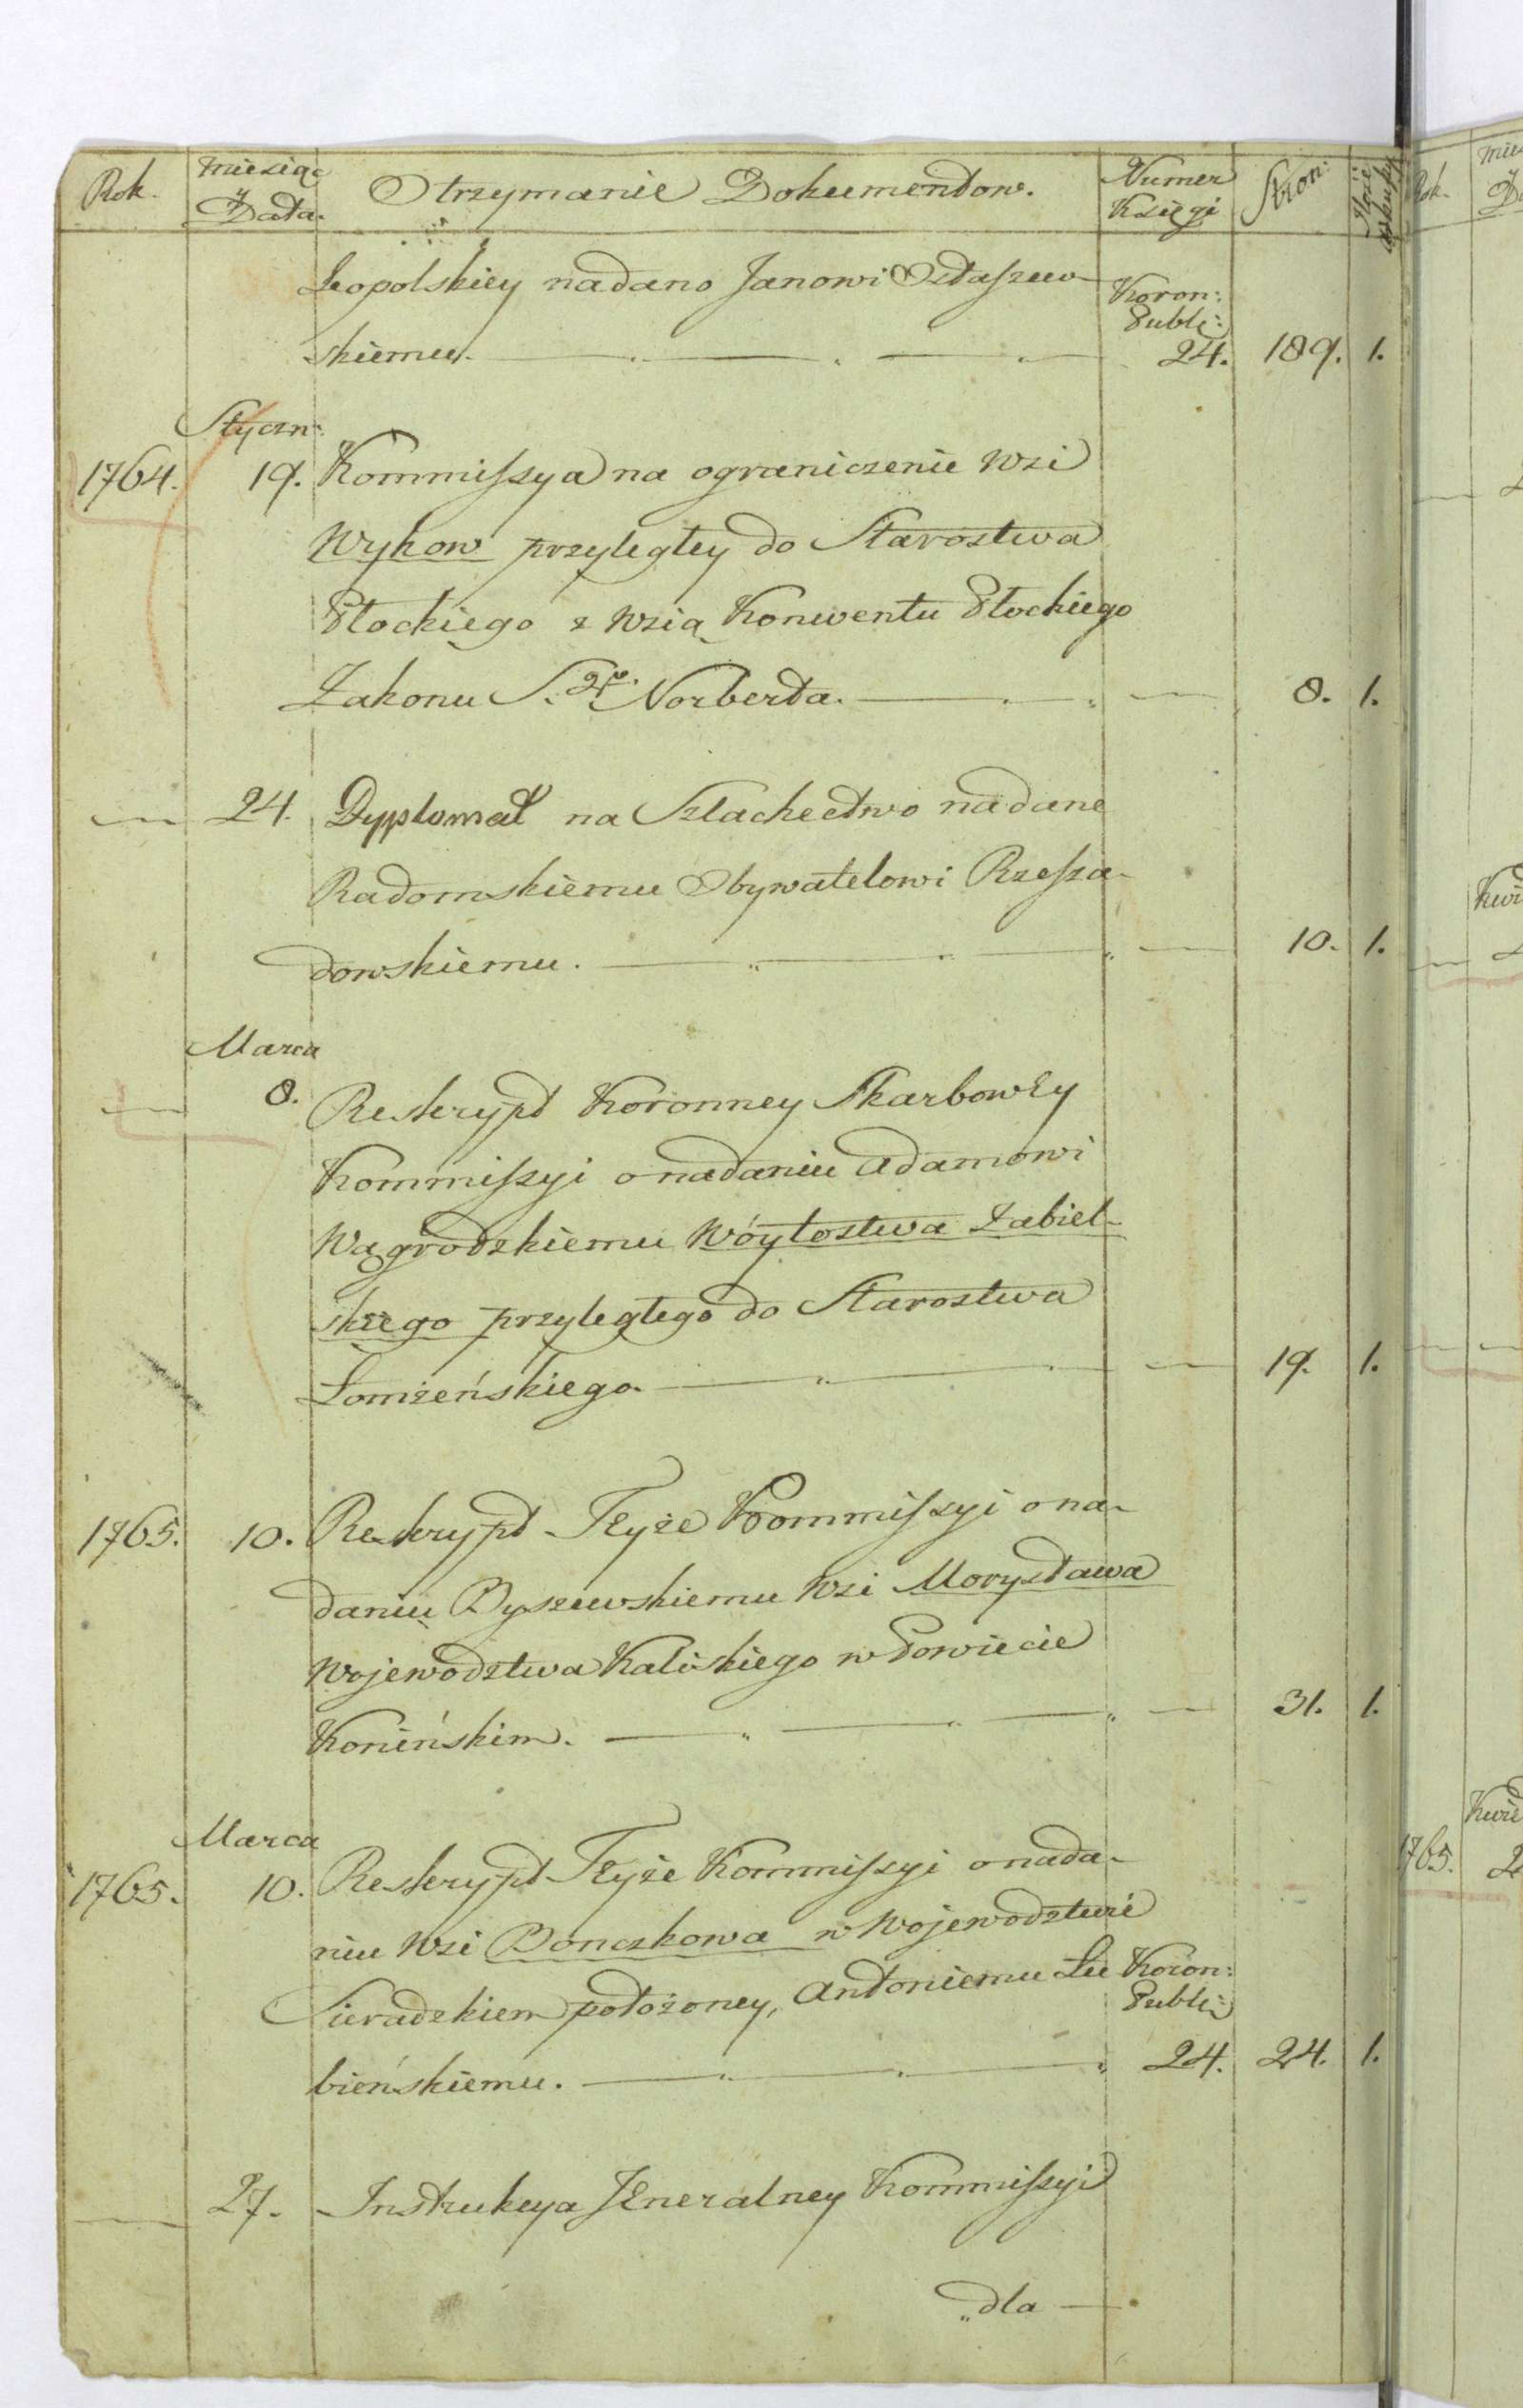 Rok. Miesiąc y Data. Otrzymanie Dokumentow. Numer Księgi Stron: Ilość
Leopolskiey nadano Janowi Ostaszew- Koron: Publ:
skiemu. 24. 189. 1.
Styczn:
1764. 19. Kommissya na ograniczenie Wsi
Wykow przyległey do Starostwa
Płockiego z Wsią Konwentu Płockiego
Zakonu S. go Norberta. 8. 1.
24. Dyplomat na Szlachectwo nadane
Radomskiemu Obywatelowi Rzessa-
dowskiemu. 10. 1.
Marca
8. Reskrypt Koronney Skarbowey
Kommissyi o nadaniu Adamowi
Wągrodzkiemu Wóytostwa Zabiel-
skiego przyległego do Starostwa
Łomżeńskiego. 19. 1.
1765. 10. Reskrypt Teyże Kommissyi o na-
daniu Byszewskiemu Wsi Morysława
Wojewodztwa Kaliskiego w Powiecie
Konińskim. 31. 1.
Marca
1765. 10. Reskrypt Teyże Kommissyi o nada-
niu Wsi Bonczkowa w Wojewodztwie
Sieradzkiem położoney, Antoniemu Łu Koron: Publ:
bieńskiemu. 24. 24. 1.
27. Instrukcya Jeneralney Kommissyi
dla